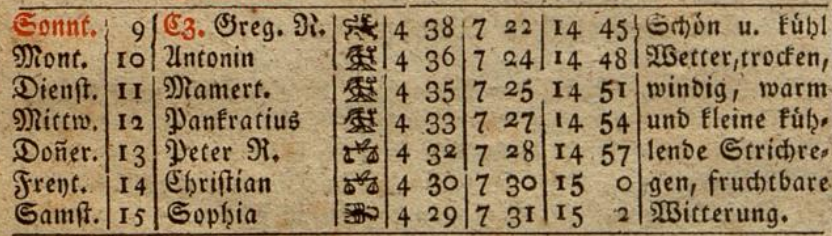 Sonnt. 9 Cz. Greg. N. 4 38 7 22 14 45 Schön u. kühl
Mont. 10 Antonin 4 36 7 24 14 48 Wetter, trocken,
Dienst. 11 Mamert. 4 35 7 25 14 51 windig, warm
Mittw. 12 Pankratius 4 33 7 27 14 54 und kleine küh-
Doñer. 13 Peter R. 4 32 7 28 14 57 lende Strichre-
Freyt. 14 Christian 4 30 7 30 15 0 gen, fruchtbare
Samst. 15 Sophia 4 29 7 31 15 2 Witterung.